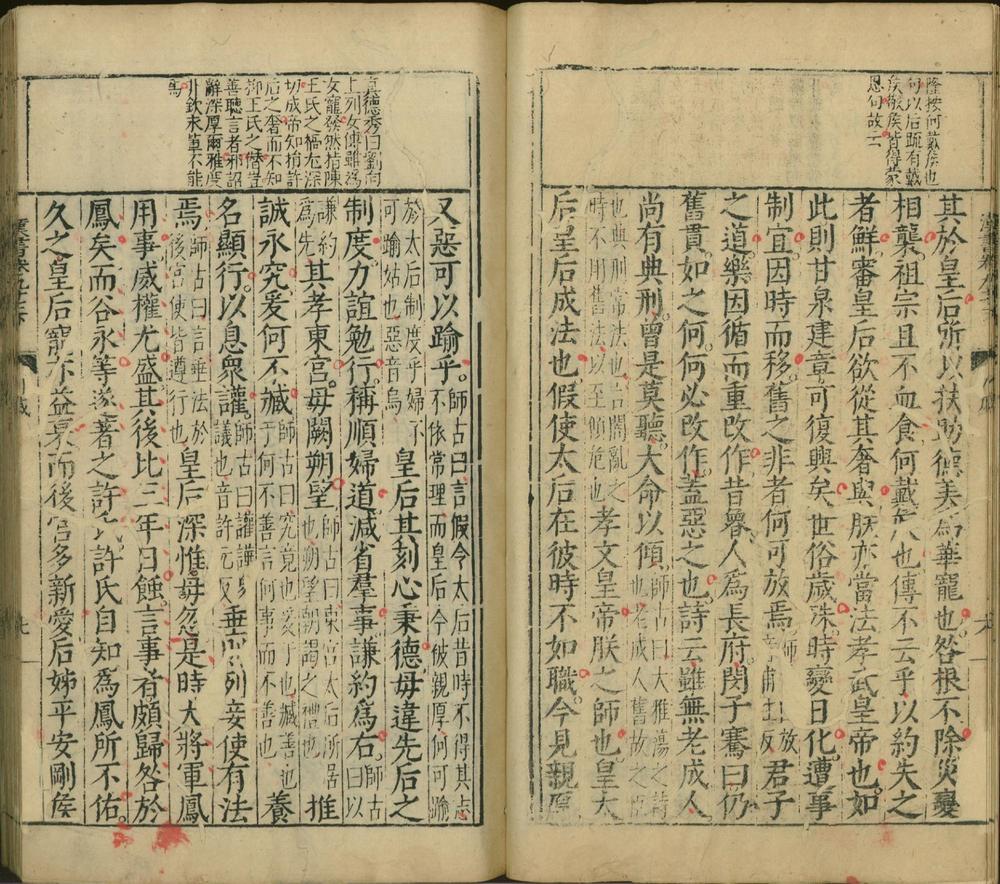 隆按何戴侯也
句以后疏有戴
侯敬侯皆得蒙
恩句故云
其於皇后所以扶助德美為華寵也咎根不除災變
相襲祖宗且不血食何戴侯也傳不云乎以約失之
者鮮審皇后欲從其奢與朕亦當法孝武皇帝也如
此則甘泉建章可復興矣世俗歲殊時變日化遭事
制宜因時而移舊之非者何可放焉師 放 甫往反君子
之道樂因循而重改作昔魯人為長府閔子騫曰仍
舊貫如之何何必改作蓋惡之也詩云雖無老成人
尚有典刑曾是莫聽大命以傾師古曰大雅蕩之詩也老成人舊故之臣
也典刑常法也言闇亂之時不用舊法以至傾危也孝文皇帝朕之師也皇太
后皇后成法也假使太后在彼時不如職今見親厚
真德秀曰劉向
上列女傳雖為
女寵發然指陳
王氏之禍尤深
切成帝知損許
后之奢而不知
抑王氏之僭豈
善聽言者邪詔
辭深厚爾雅度
非欽永輩不能
為
又惡可以踰乎師古曰言假令太后昔時不得其志不依常理而皇后今彼親厚何可踰
於太后制度乎婦不可踰姑也惡音烏皇后其刻心秉德毋違先后之
制度力誼勉行稱順婦道減省羣事謙約為右師古曰以
謙約為先其孝東宮毋闕朔望師古曰東宮太后所居也朔望朝謁之禮也推
誠永究爰何不臧師古曰究竟也爰于也臧善也于何不善言何事而不善也養
名顯行以息衆讙師古曰讙譁 議也音許元反垂則列妾使有法
焉師古曰言垂法於後宮使皆遵行也皇后深惟毋忽是時大將軍鳳
用事威權尤盛其後比三年日蝕言事者頗歸咎於
鳳矣而谷永等遂著之許氏許氏自知為鳳所不佑
久之皇后寵亦益衰而後宮多新愛后姊平安剛侯